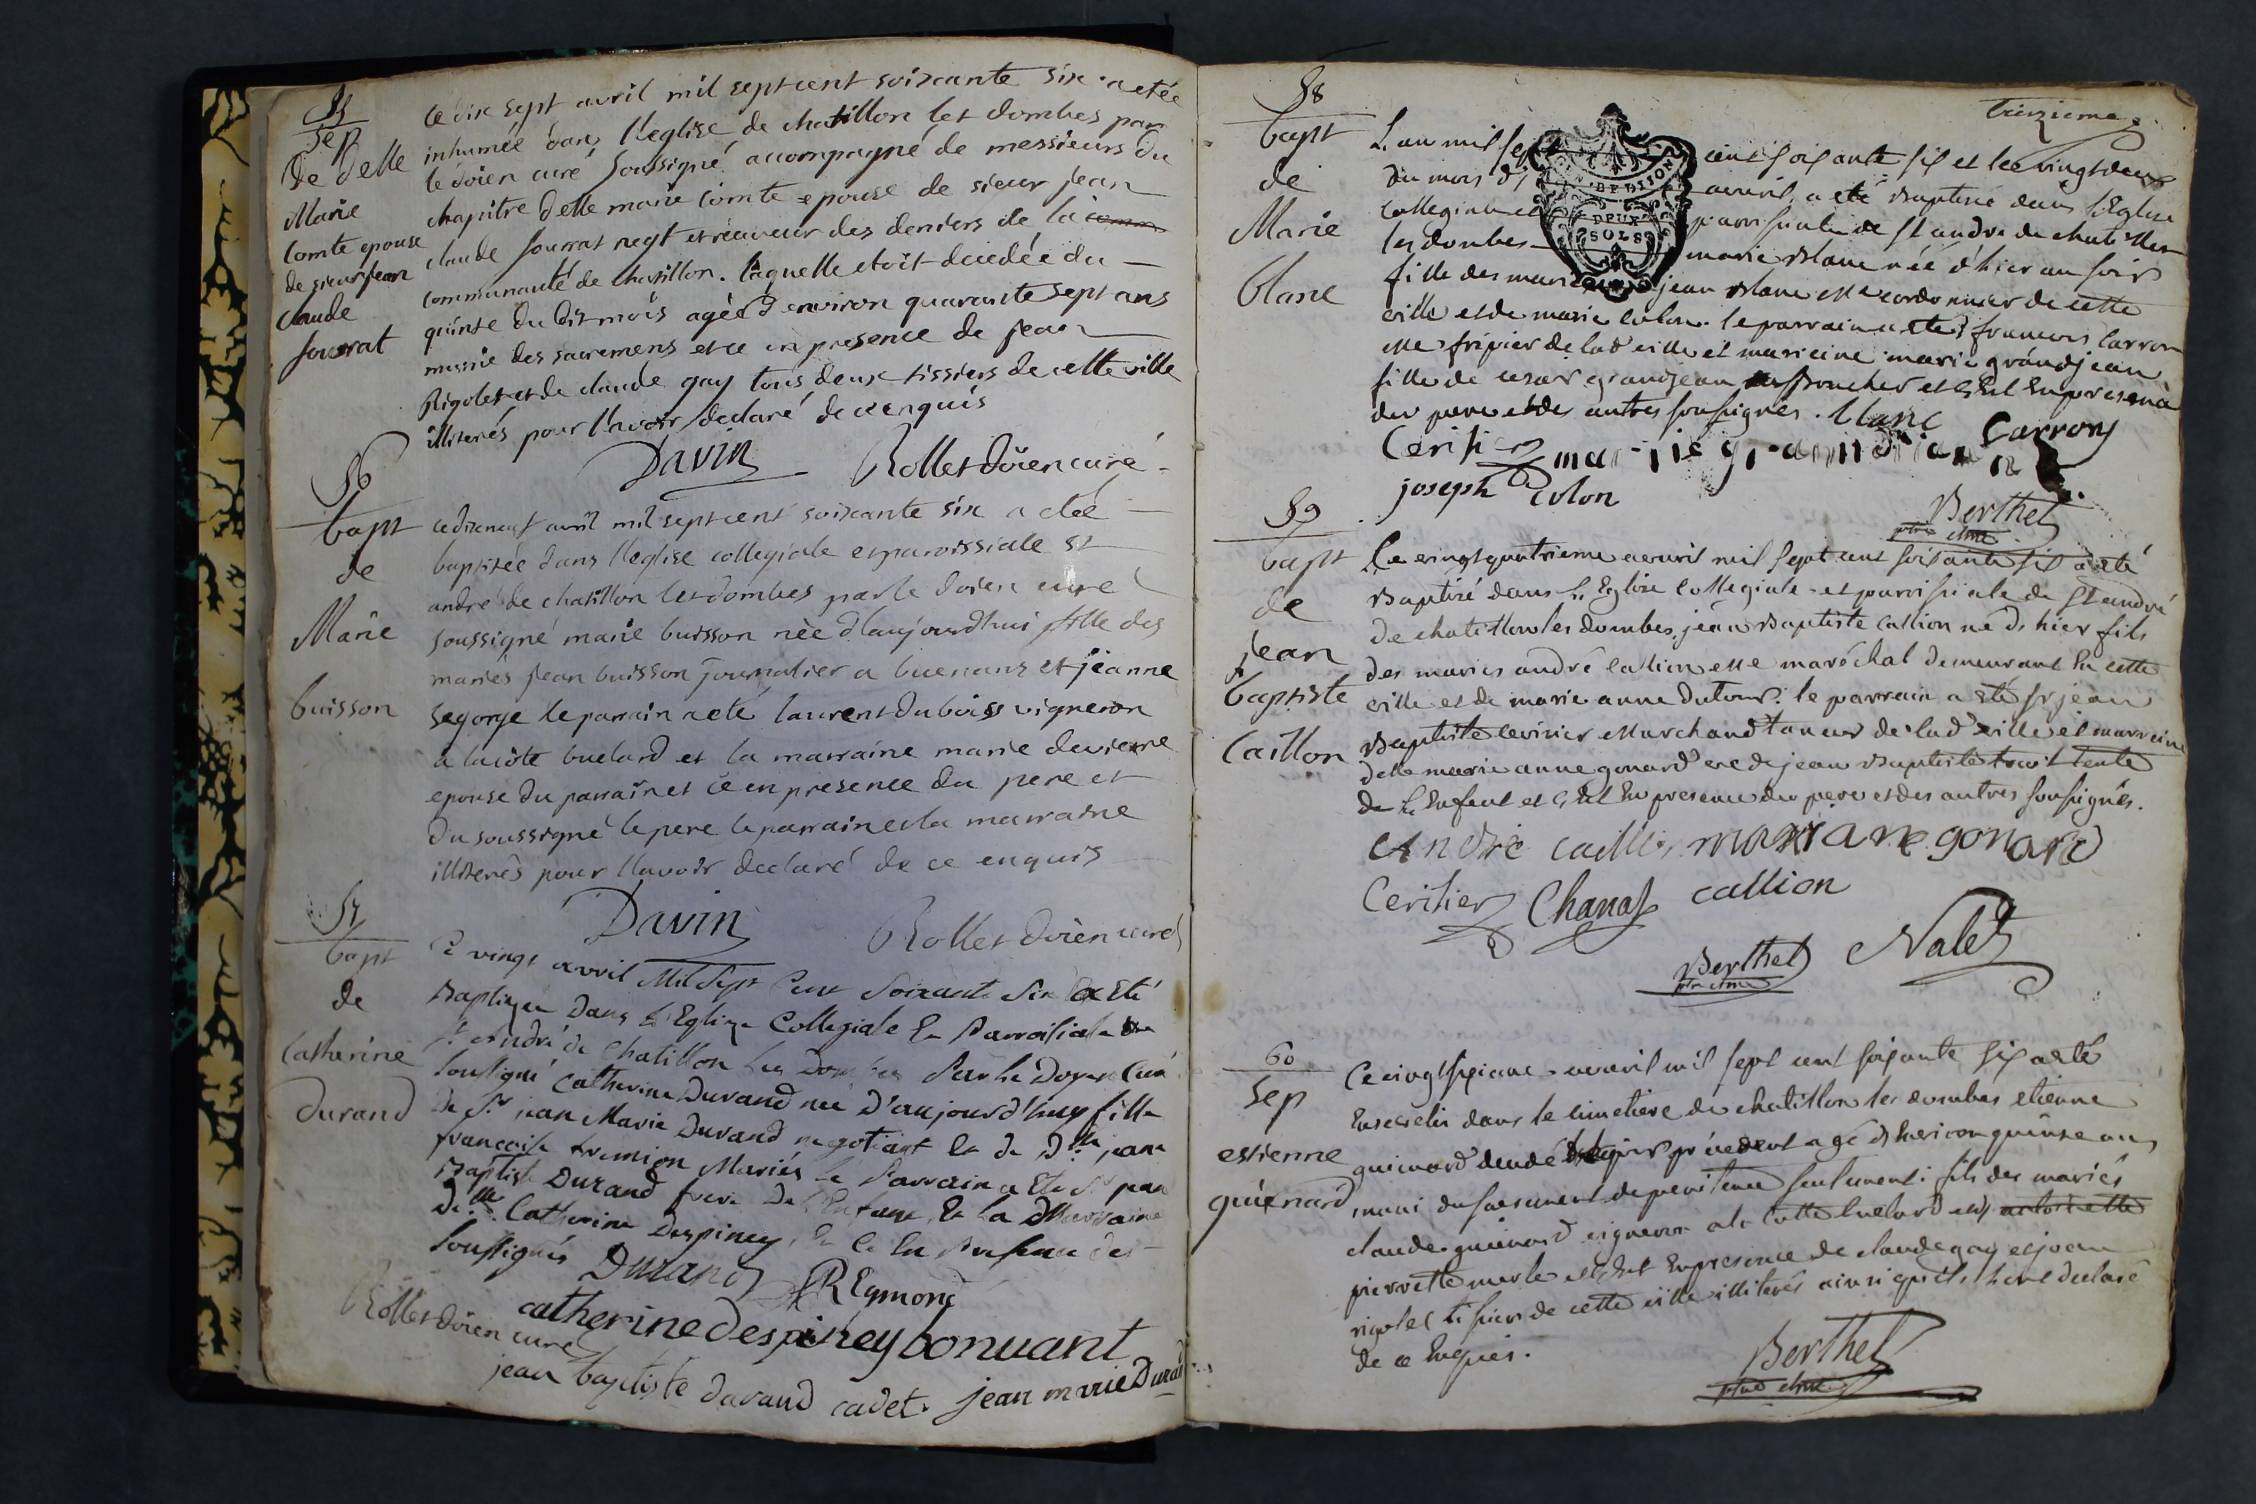 55
sep
de delle
Marie
Comte epouse
de sieur jean
claude
sourrat
ce dix sept avril mil sept cent soixante six a etée
inhumée dans l'eglise de chatillon les dombes par
le doïen curé soussigné accompagné de messieurs du
chapitre delle marie comte epouse de sieur jean
claude sourrat negt et réceveur des deniers de la comm
communauté de chatillon. laquelle etoit decedée du
quinse du dit mois agée d'environ quarante sept ans
munie des sacremens et ce en presence de jean
Rigolet et de claude gay tous deux tissiers de cette ville
illiterés pour l'avoir declaré de ce enquis
Davin Rollet doïen curé
56
bapt
de
Marie
buisson
ce dixneuf avril mil sept cent soixante six a etée
baptisée dans l'eglise collegiale et paroissiale st
andré de chatillon les dombes par le doïen curé
soussigné marie buisson née d'aujourd'hui fille des
mariés jean buisson journalier a buenans et jeanne
segorge le parrain a eté laurent dubois vigneron
a la côte buelard et la marraine marie devienne
epouse du parrain et ce en presence du pere et
du soussigné le pere le parrain et la marraine
illiterés pour l'avoir declaré de ce enquis
Davin Rollet doïen curé
57
bapt
de
Catherine
durand
Ce vingt avril Mil Sept Cent Soixante Six a Eté
Baptizée Dans L'Eglize Collegiale Et Parroisiale
St andré de Chatillon Les Dombes Par Le Doyen Curé
Soussigné Catherine Durand née D'aujourd'huy fille
de Sr jean Marie Durand negotiant Et de Dlle jeanne
francoise fremion Mariés Le Parrain a Eté Sr jean
Baptiste Durand frere De L'Enfant, Et La Marraine
Dlle Catherine Despiney, Et Ce En Presence des
Soussignés Durand REgmond
Rollet doïen curé catherine despiney bonuant
jean baptiste durand cadet jean marie Durand
treizieme
58
bapt
de
Marie
blanc
L'an mil sept cent soixante six et le vingtdeux
du mois d'avril, a eté Baptisée dans l'Eglise
collegiale et parroissiale de St andré de chatillon
les dombes marie Blanc née d'hier au soir
fille des mariés jean Blanc Me cordonnier de cette
ville et de marie colon. le parrain a eté francois Carron
Me fripier de lad ville et marreine marie grandjean
fille de cesar grandjean boucher et c'est En presence
du pere et des autres soussignés. blanc Carron
Ceritier marie grandjean
joseph Colon
Berthet
DEUX
SOLS
59
bapt
de
jean
baptiste
Caillon
Le vingtquatrieme avril mil sept cent soixante six a eté
Baptisé dans L'Eglise Collegiale et parroissiale de St andré
de chatillon les dombes, jean Baptiste Callion né d'hier fils
des mariés andré callion Me maréchal demeurant En cette
ville et de marie anne dutour. le parrain a eté sr jean
Baptiste cerisier Marchand taneur de lad ville et marreine
delle marie anne gonard
de L'Enfent et c'est En presence du pere et des autres soussignés.
Andrè cailli mariane gonard
Ceritier Chanas callion
Berthet Nalet
60
sep
estienne
guienard
Ce vingtsixieme avril mil sept cent soixante six a eté
Enseveli dans le cimetière de chatillon les dombes etienne
guienard decedé précedent agé d'Environ quinse ans
muni du sacrement de penitence seulement: fils des mariés
claude guienard vigneron a la Cotte buelard et d'
pierrette merle et c'est En presence de claude gay et jean
rigolet tissiers de cette ville illiterés ainsi qu'ils l'ont declaré
de ce Enquis.
Berthet